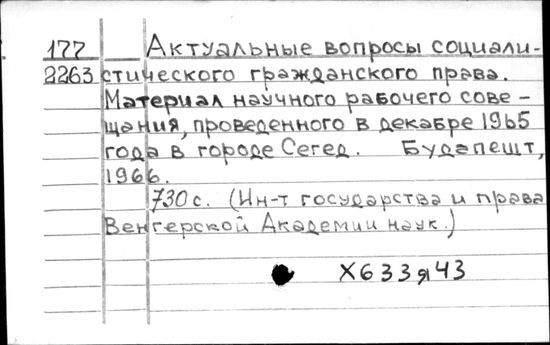 177 Актуальные вопросы социали-
2263 стического гражданского права.
Материал научного рабочего сове-
щания, проведенного в декабре 1965
года в городе Сегед. Будапешт,
1966.
730 с. (Ин-т государства и права
Венгерской Академии наук.)
Х633я43